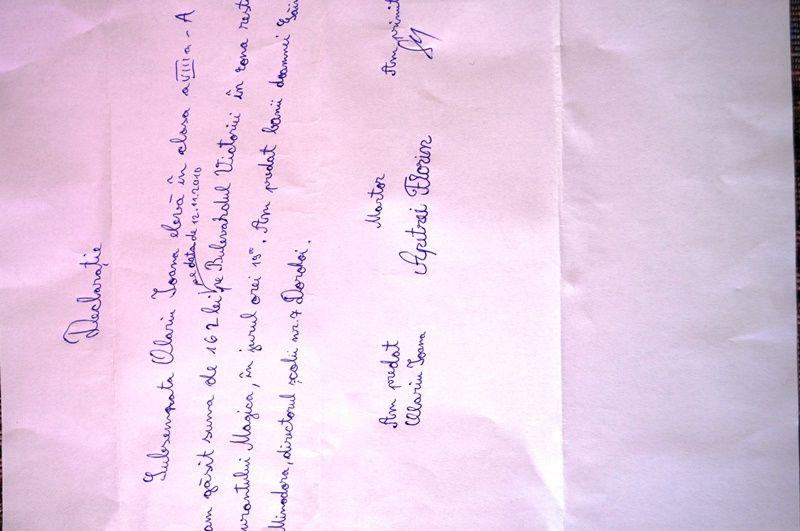 Declarație
Subsemnata Olariu Ioana elevă în clasa a VIII a - A
am găsit suma de 162 lei pe data de 12.11.2010 pe Bulevardul Victoriei în zona rest
urantului Magica, în jurul orei 15⁰⁰. Am predat banii doamnei
Minodora, directorul școlii nr. 7 Dorohoi.
Am predat Martor Am primit
Olariu Ioana Apitrei Florin